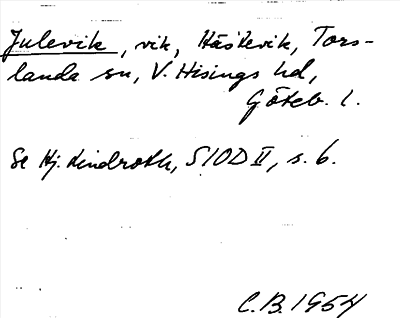 Julevik, vik, Hästevik, Tors-
landa sn, V. Hisings hd,
Göteb. l.
Se Hj. Lindroth, SIOD II, s. 6.
C.B. 1954